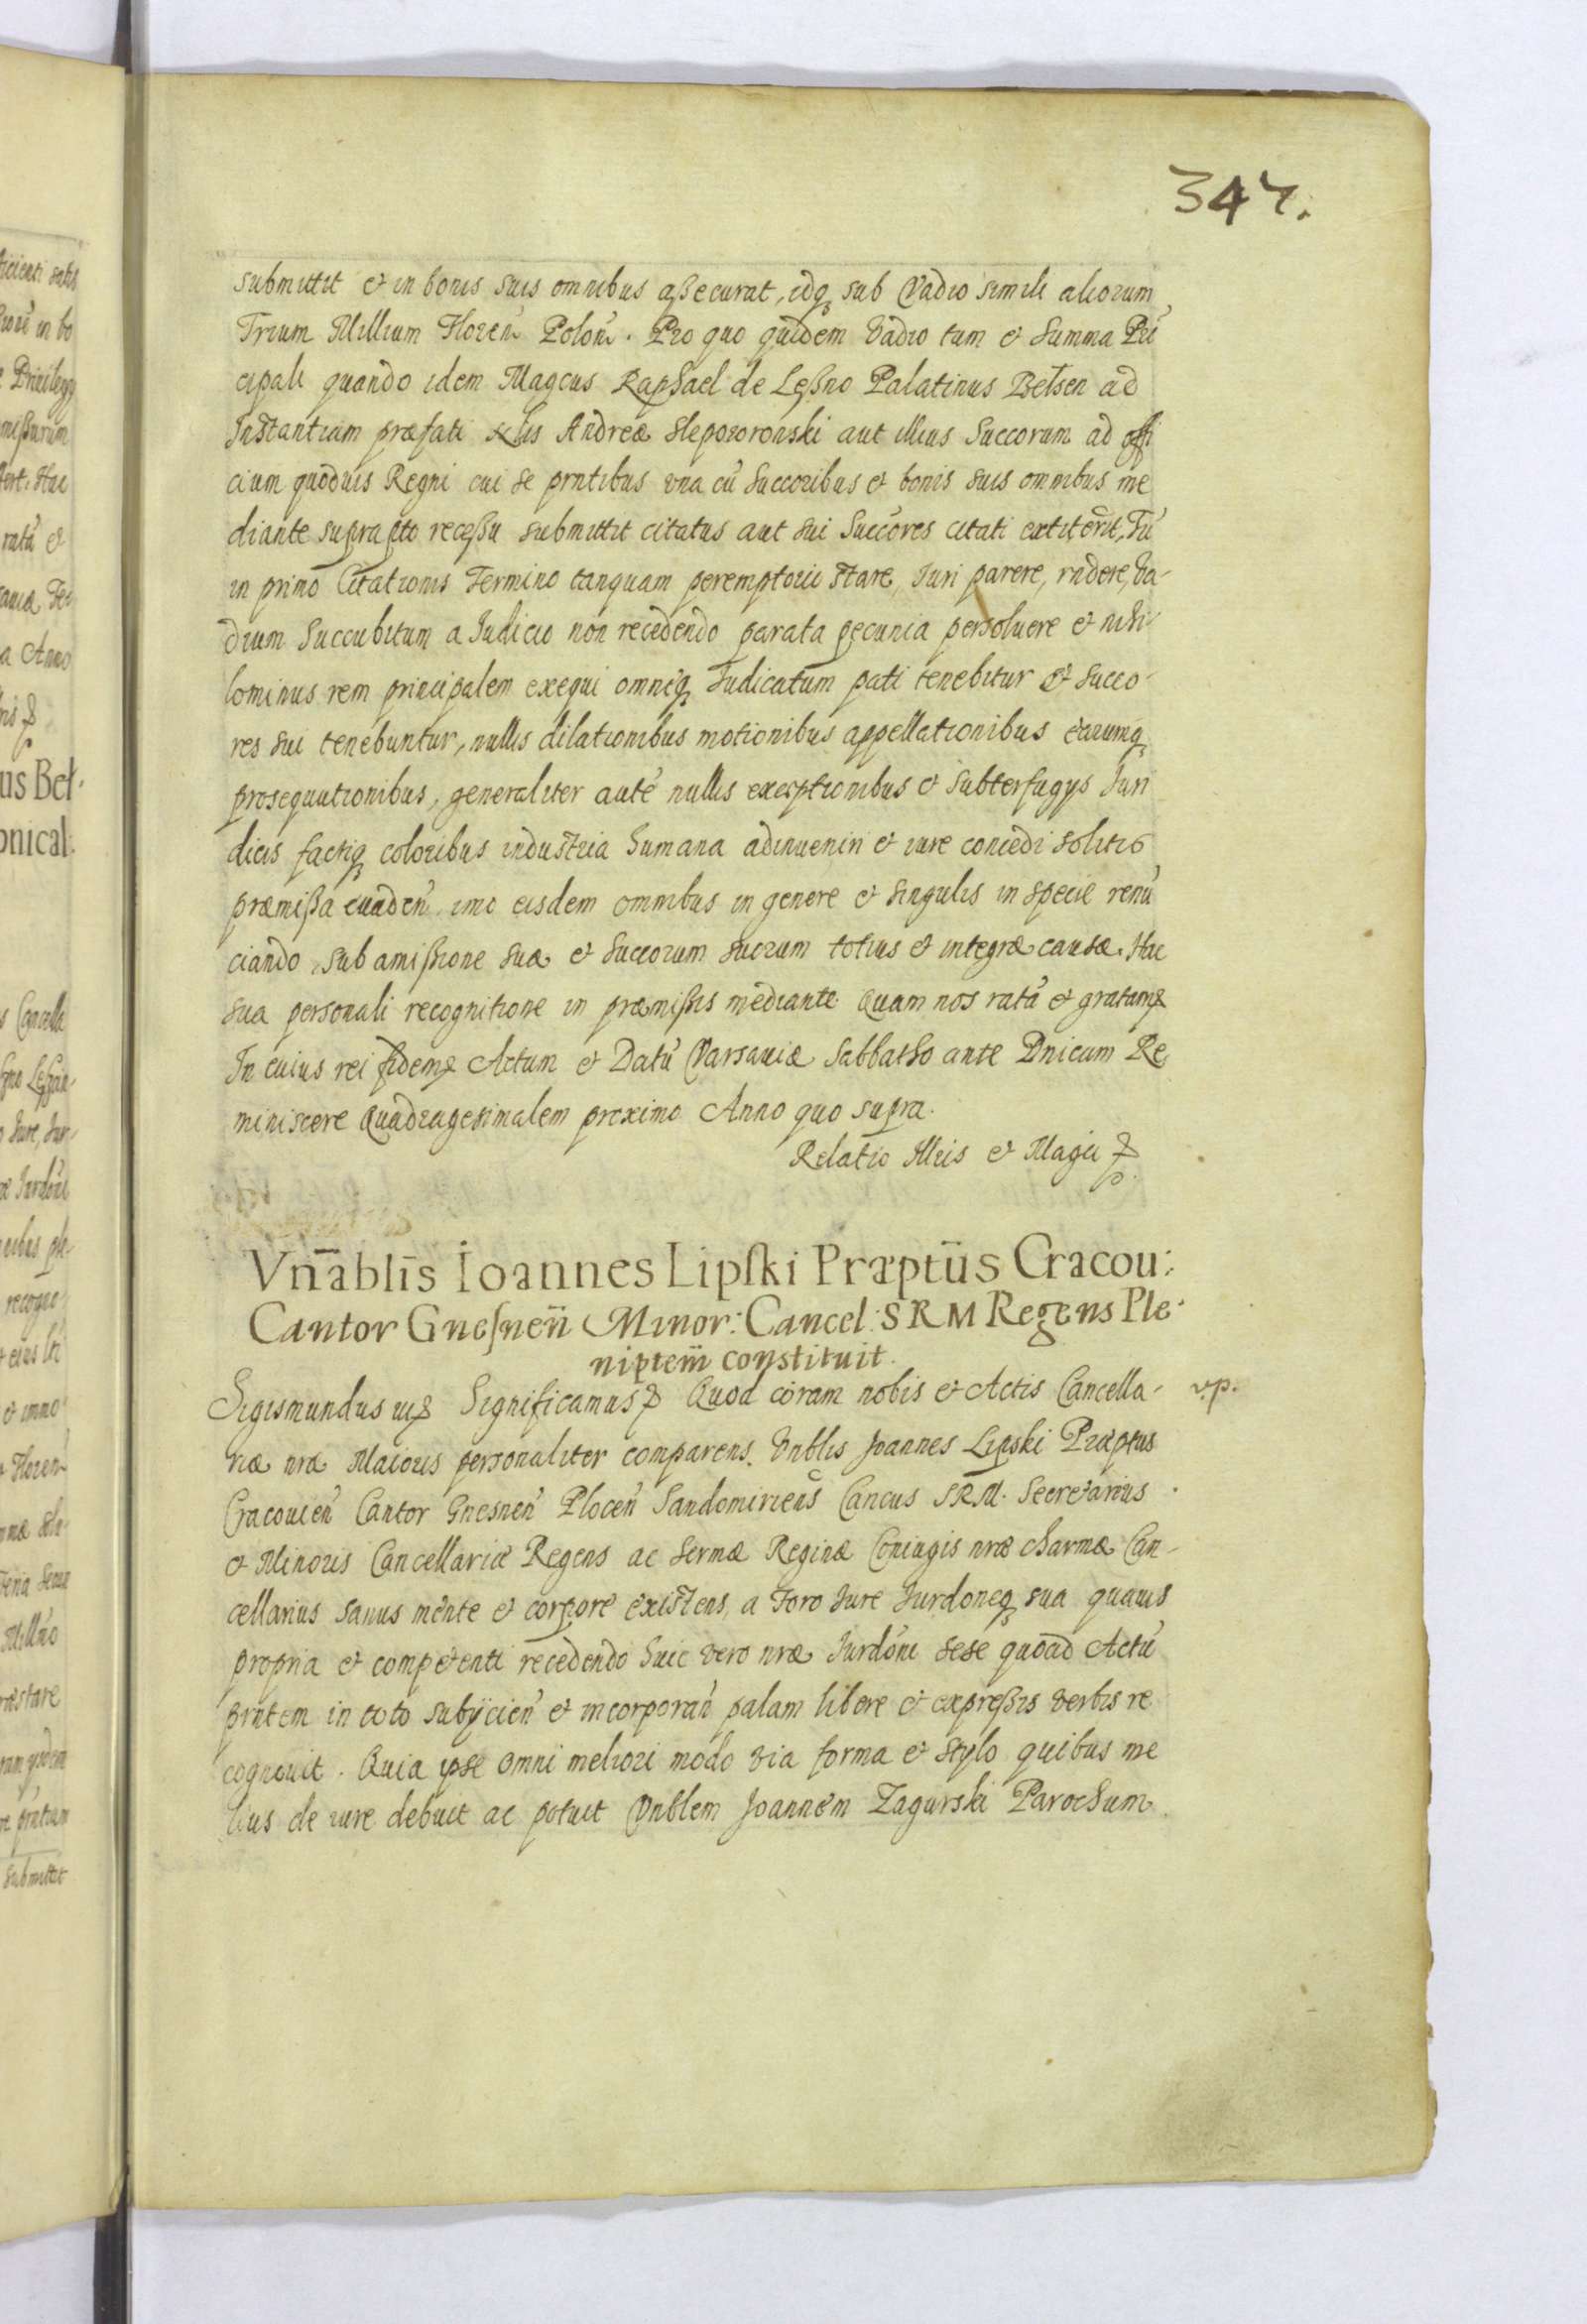 347.
submittit et in bonis suis omnibus aßecurat, idq sub Vadio simili aliorum
Trium Millium Floren Polon. Pro quo quidem Vadio tum et Summa Prī
cipali quando idem Magcus Raphael de Leßno Palatinus Belsen ad
Instantiam præfati Andreæ aut illius Succorum ad offi
cium quodvis Regni cui se prntibus vna cū Succoribus et bonis suis omnibus me
diante suprapto receßu submittit citatus aut sui Succores citati extiterit, Tū
in primo Citationis Termino tanquam peremptorii stare, Iuri parere, rndere, Va-
dium Succubitum a Iudicio non recedendo parata pecunia persoluere et nihi
lominus rem principalem exequi omneq Iudicatum pati tenebitur et Succo-
res sui tenebuntur, nullis dilationibus motionibus appellationibus earumq
prosequutionibus, generaliter autē nullis exceptionibus et Subterfugys Iuri
dicis factiq coloribus industria humana adinuenin et iure concedi solitis
præmißa euaden imo eisdem omnibus in genere et singulis in specie renū
ciando, sub amißione suæ et Succorum suorum totius et integræ causæ. Hac
sua personali recognitione in præmißis mediante. Quam nos ratā et gratam
In cuius rei fidem Actum et Datū Varsauiæ Sabbatho ante Dnicam Re
miniscere Quadragesimalem proximo Anno quo supra.
Relatio Illris et Magci
Vn̄ablīs Ioannes Lipski Præptus Cracou:
Cantor Gnesnen Minor: Cancel: S R M Regens Ple-
niptem constituit.
Sigismundus iii Significamus Quod coram nobis et Actis Cancella- v.p.
riæ nræ Maioris personaliter comparens. Vnblis Joannes Lipski Præptus
Cracouien Cantor Gnesnen Plocen Sandomiriens Cancus SRM. Secretarius
et Minoris Cancellariæ Regens ac Sermæ Reginæ Coniugis nræ charmæ Can-
cellarius sanus mente et corpore existens, a Foro Iure Iurdoneq sua quauis
propria et competenti recedendo huic vero nræ Iurdōni sese quoad Actū
prntem in toto subÿcien et incorporan palam libere et expreßis verbis re
cognouit. Quia ipse omni meliori modo via forma et stylo quibus me
lius de iure debuit ac potuit Vnblem Joannem Zagurski Parochum